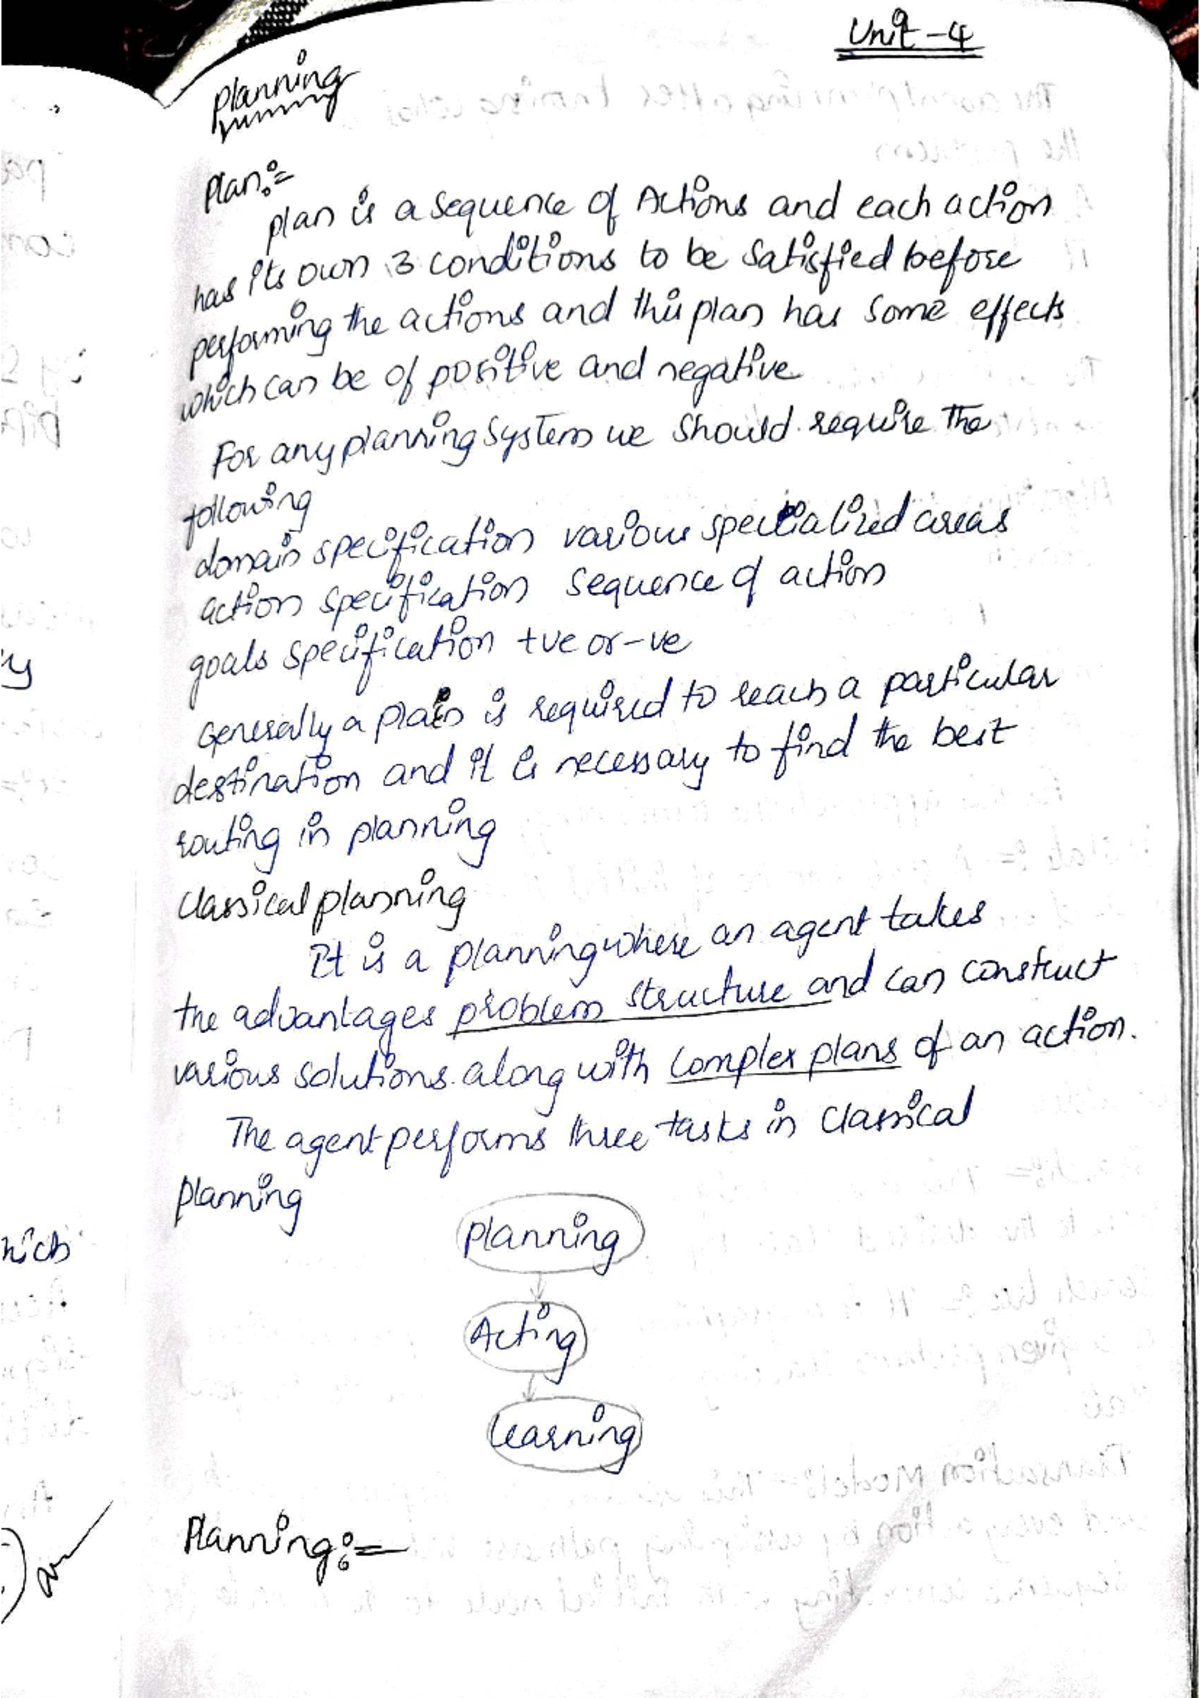 Unit-4
planning
Plan:=
plan is a sequence of Actions and each action
has its own 3 conditions to be satisfied before
performing the actions and this plan has some effects
which can be of positive and negative
For any planning system we should require the
following
domain specification various specialized areas
action specification sequence of action
goals specification +ve or -ve
Generally a plan is required to reach a particular
destination and it is necessary to find the best
routing in planning
classical planning
It is a planning where an agent takes
the advantages problem structure and can construct
various solutions along with complex plans of an action.
The agent performs three tasks in classical
planning
Planning
Acting
Learning
Planning:=